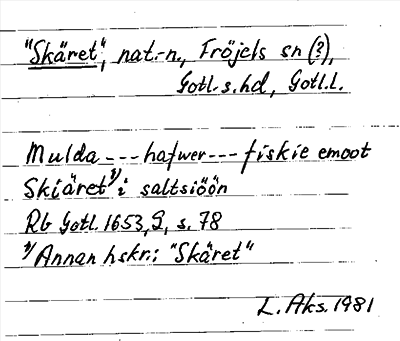 "Skäret", nat.-n., Fröjels sn (?),
Gotl. s. hd, Gotl. l.
Mulda --- hafwer --- fiskie emoot
Skiäret 1) i saltsiöön
Rb Gotl. 1653, 9, s. 78
1) Annan hskr.: "Skäret"
L. Aks. 1981